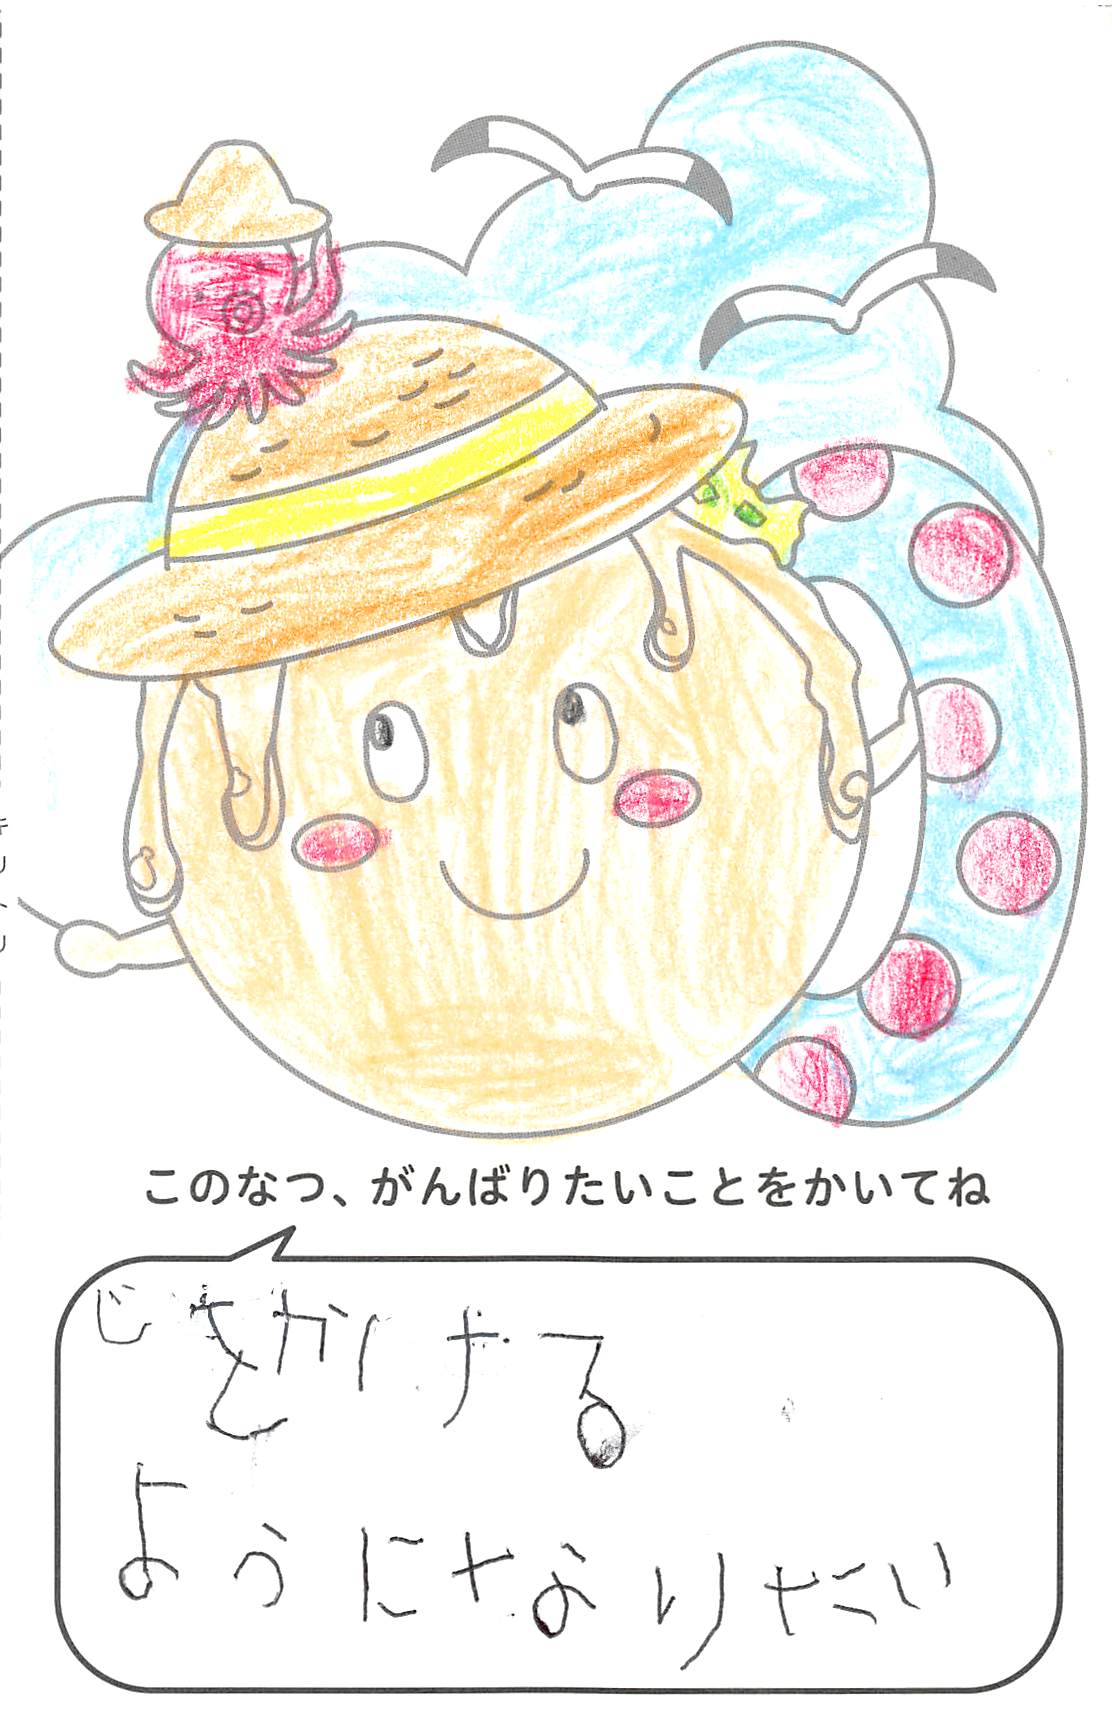 このなつ、がんばりたいことをかいてね
じをかける
ようになりたい
キリトリ